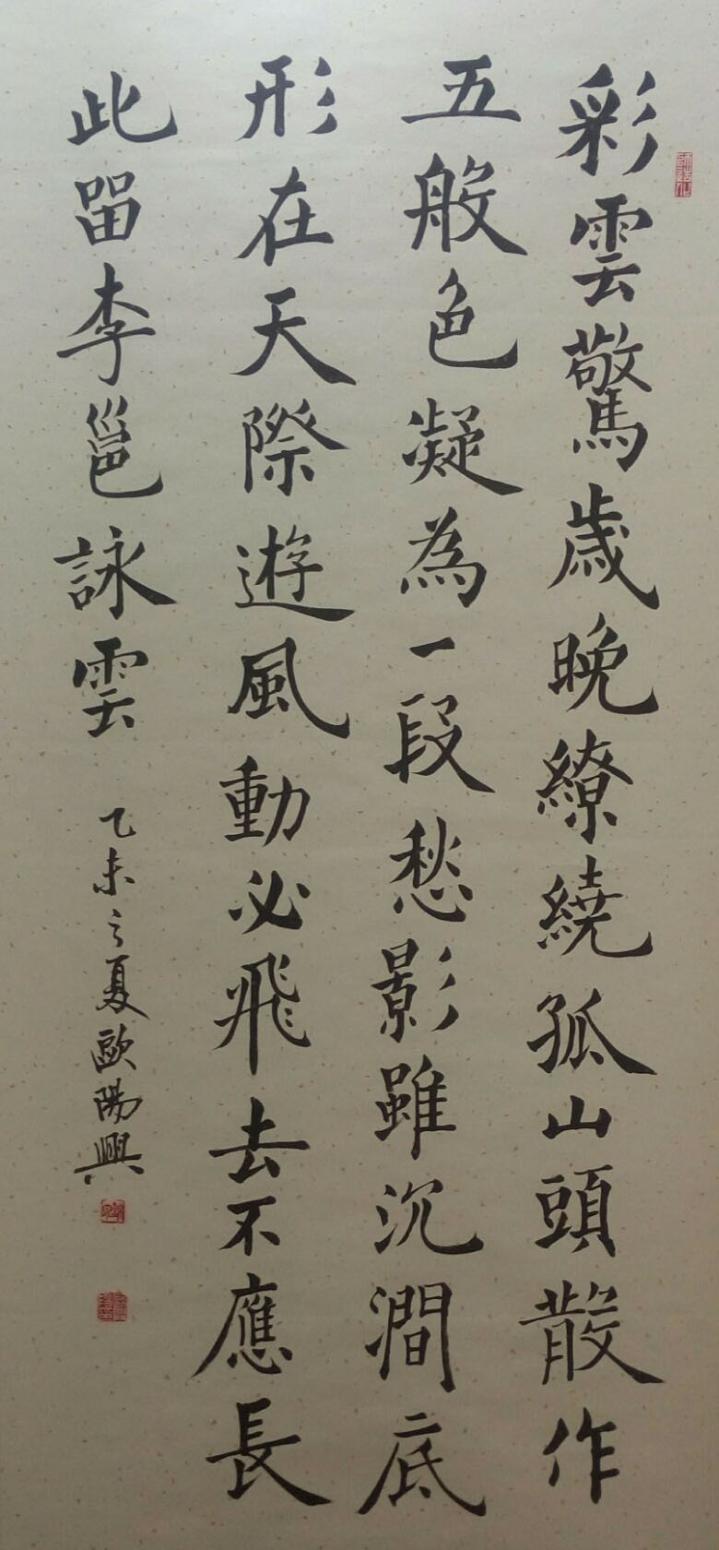 彩雲驚歲晚繚繞孤山頭散作
五般色凝為一段愁影雖沉澗底
形在天際遊風動必飛去不應長
此留李邕詠雲 乙未之夏歐陽興